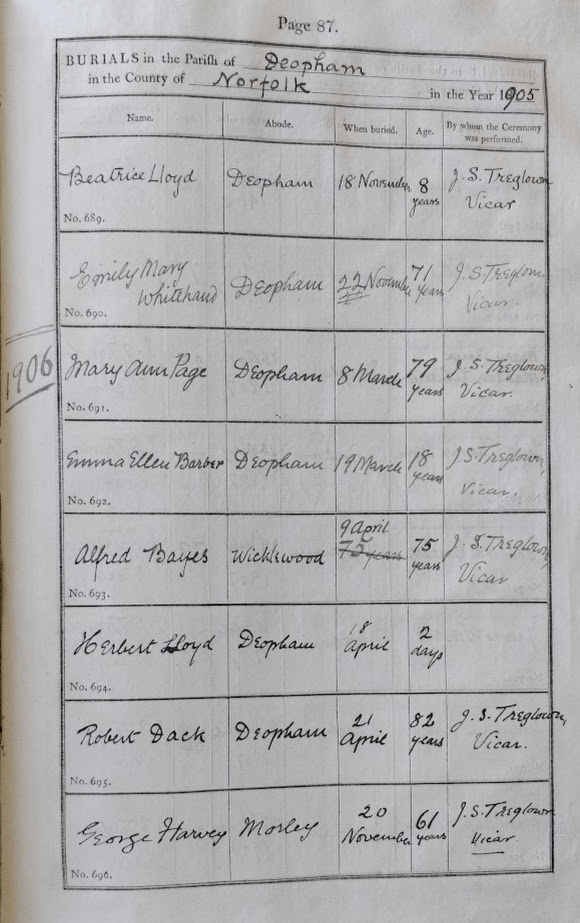 Page 87.
BURIALS in the Parish of Deopham
in the County of Norfolk in the Year 1905
Name. Abode. When buried. Age. By whom the Ceremony was performed.
Beatrice Lloyd Deopham 18 November 8 years J. S. Treglown Vicar
No. 689.
Emily Mary Whitehand Deopham 22 November 71 years J. S. Treglown Vicar.
No. 690.
1906
Mary Ann Page Deopham 8 March 79 years J. S. Treglown, Vicar.
No. 691.
Emma Ellen Barber Deopham 19 March 18 years J. S. Treglown, Vicar.
No. 692.
Alfred Bayes Wicklewood 9 April 75 years 75 years J. S. Treglown, Vicar
No. 693.
Herbert Lloyd Deopham 18 April 2 days
No. 694.
Robert Dack Deopham 21 April 82 years J. S. Treglown, Vicar.
No. 695.
George Harvey Morley 20 November 61 years J. S. Treglown Vicar
No. 696.